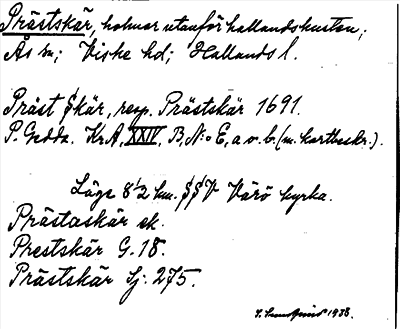 Prästskär, holmar utanför hallandskusten;
Ås sn; Viske hd; Hallands l.
Präst Skär, resp. Prästskär 1691.
P. Gedda. KrA, XXIV, B, N:o E, a o. b. (m. kartbeskr.).
Läge 8½ km. SSV Värö kyrka.
Prästaskär ek.
Prestskär G. 18.
Prästskär Sj. 275.
1938.